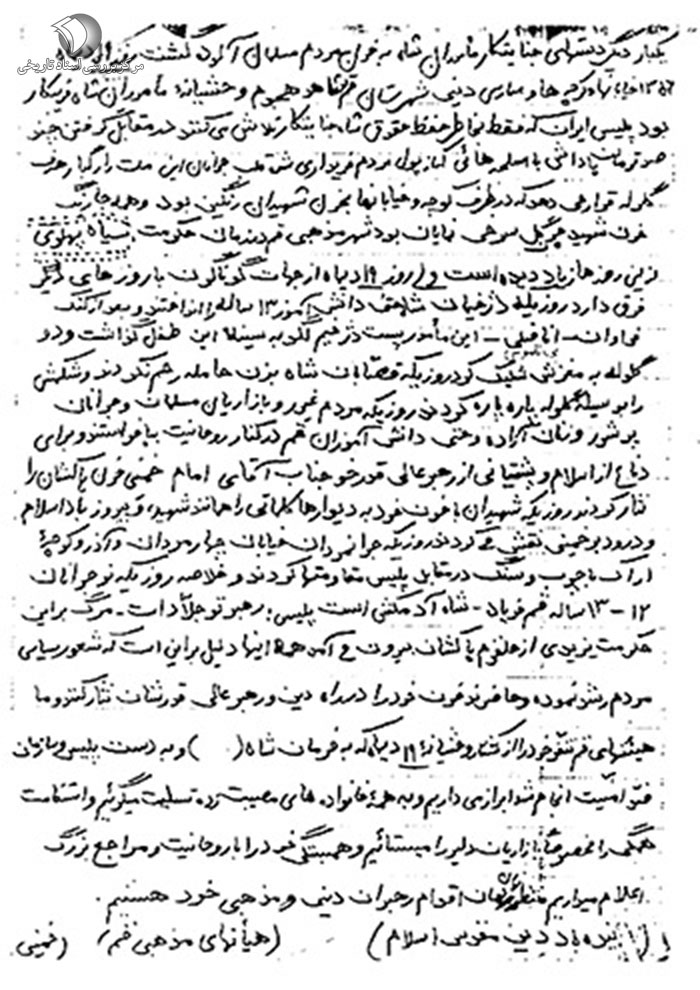 مرکز بررسی اسناد تاریخی
یکبار دیگر دستهای جنایتکار مأموران شاه به خون مردم مسلمان آلوده گشت روز ۱۹ دیماه
۱۳۵۶ خیابانها و کوچه ها و مدارس دینی شهرستان قم شاهد هجوم وحشیانه مأموران شاه
بود پلیس ایران که فقط بخاطر حفظ حقوق شاه جنایتکار تلاش می کنند در مقابل گرفتن چند
صد تومان پاداش با اسلحه هائی که از پول مردم خریداری شده جوانان این ملت را گلوله
گلوله قرار می دهد که در ظرف کوچه و خیابانها بخون شهیدان رنگین بود و همه جا رنگ
خون شهید چو گل سرخی نمایان بود شهر مذهبی قم در زمان حکومت سیاه پهلوی
ازین روزها زیاد دیده است ولی روز ۱۹ دیماه از جهات گوناگون با روزهای دیگر
فرق دارد روزیکه دژخیمان شاه دانش آموز ۱۳ ساله را انداختند و
این مأمور پست دژخیم گلوله به سینه این طفل گذاشت و دو
گلوله به مغزش شلیک کرد روزیکه قصابان شاه بزن حامله رحم نکردند و شکمش
را بوسیله گلوله پاره پاره کردند روزیکه مردم غیور و بازاریهای مسلمان و جوانان
پرشور و زنان آزاده و حتی دانش آموزان قم در کنار روحانیت بپا خواستند و برای
دفاع از اسلام و پشتیبانی از رهبر عالی قدر خود جناب آقای امام خمینی خون پاکشان را
نثار کردند روزیکه شهیدان با خون خود به دیوارها کلماتی را همانند شهید، پیروز باد اسلام
و درود بر خمینی نقش می کردند روزیکه جوانمردان خیابان چهارمردان و آذر و کوچه
ارک با چوب و سنگ در مقابل پلیس مقاومتها کردند و خلاصه روزیکه نوجوانان
۱۲ - ۱۳ ساله قم فریاد - شاه آدمکش است پلیس رهبر تو جلاد است - مرگ بر این
حکومت یزیدی از حلقوم پاکشان بیرون می آمد همه اینها دلیل بر این است که شعور سیاسی
مردم رشد نموده و حاضرند خون خود را در راه دین و رهبر عالی قدرشان نثار کنند و ما
هیئتهای قم تنفر خود را از کشتار وحشیانه ۱۹ دیماه که به فرمان شاه ( ) و به دست پلیس و سازمان
ضد امنیت انجام شد ابراز می داریم و به همه خانواده های مصیبت زده تسلیت میگوئیم و استقامت
همگی را مخصوصاً بازاریان دلیر را میستائیم و همبستگی خود را با روحانیت و مراجع بزرگ
اعلام میداریم منتظر اقدام رهبران دینی و مذهبی خود هستیم.
زنده باد دین مقدس اسلام) (هیأتهای مذهبی قم) (خمینی